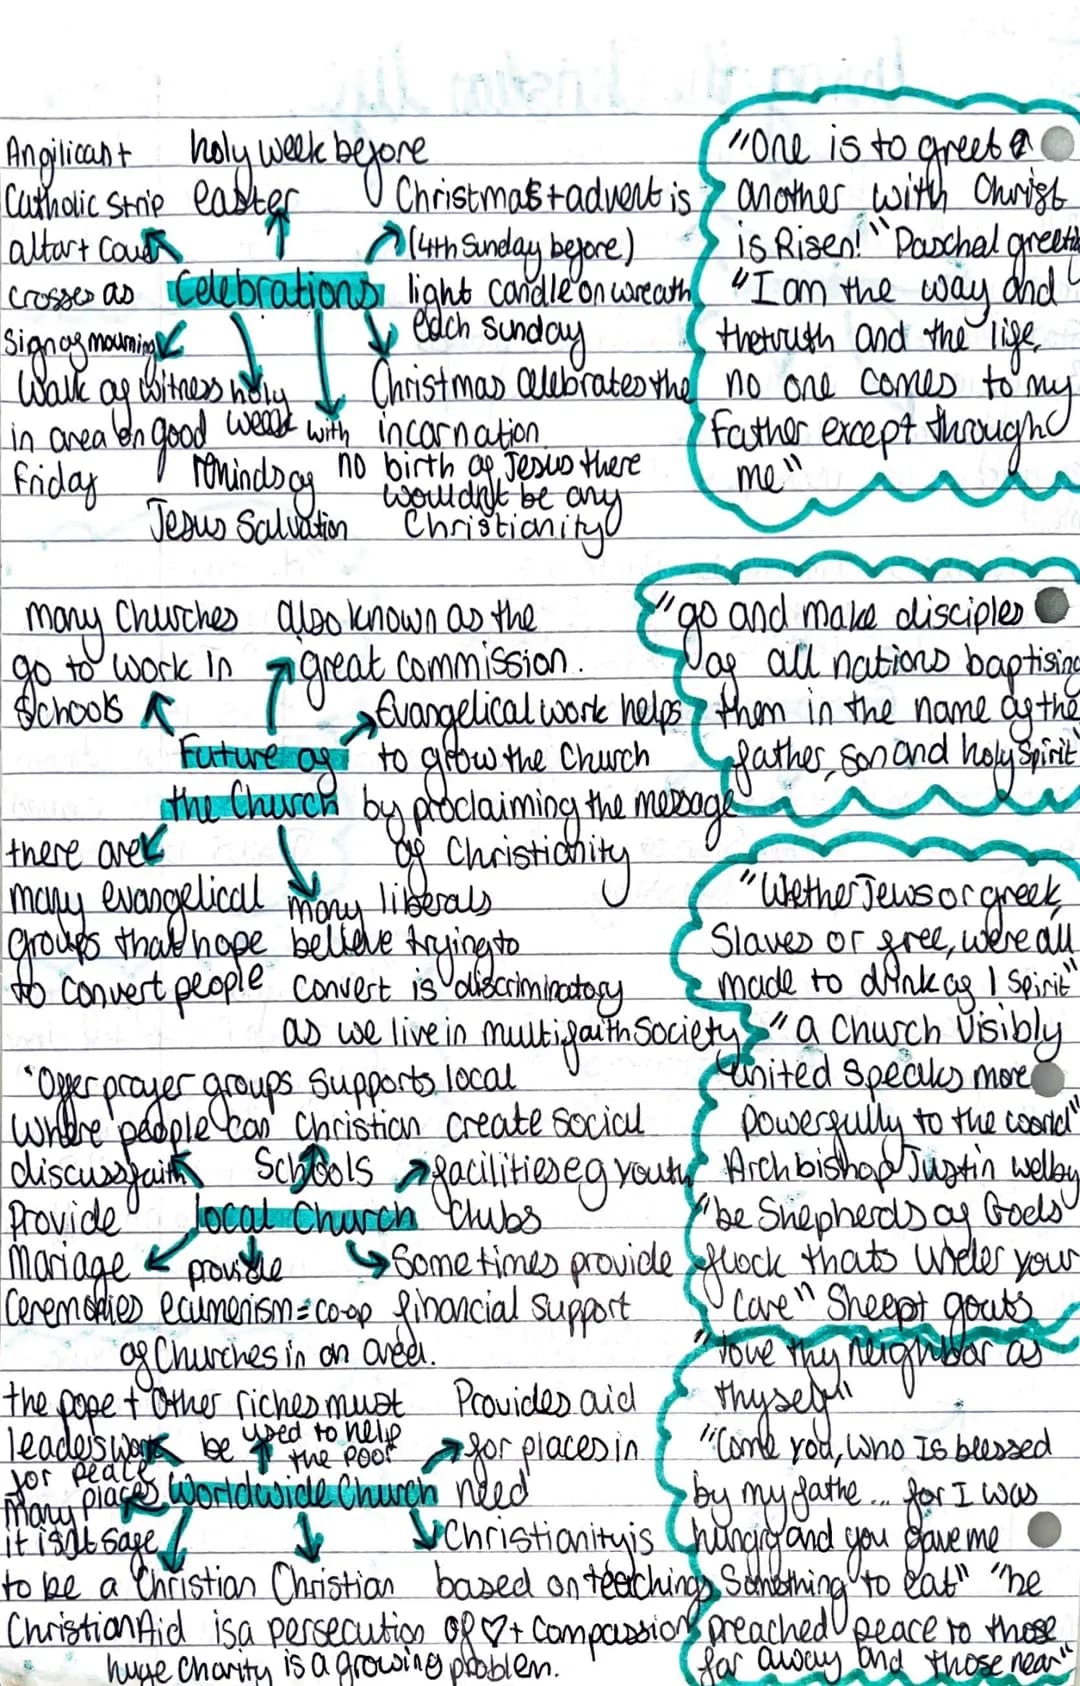 Angilican +
Catholic Strip
altar + cover
crosses as
Sign of mourning
holy week before
easter
Christmas + advent is
(4th Sunday before)
light candle on wreath
each Sunday
Celebrations
Walk of witness
in area on good
Friday
holy
week
reminds of
Jesus Salvation
Christmas celebrates the
incarnation
with
no birth of Jesus there
wouldn't be any
Christianity
"One is to greet
another with Christ
is Risen!" Paschal
"I am the way and
the truth and the life,
no one comes to my
Father except through
me"
many Churches
go to work in
Schools
also known as the
great commission.
Evangelical work helps
to grow the Church
by proclaiming the message
of Christianity
Future of
the Church
there are
many evangelical
groups that hope
to convert people
many liberals
believe trying to
convert is discriminatory
as we live in multifaith Society
"go and make disciples
of all nations baptising
them in the name of the
father, son and holy Spirit"
"Wether Jews or greek,
Slaves or free, were all
made to drink of 1 Spirit"
"a Church visibly
united speaks more
powerfully to the world"
Archbishop Justin welby
"be Shepherds of Gods
flock thats under your
care" Sheep + goats
Offer prayer groups
where people can
discuss faith
supports local
Christian
Schools
create social
facilities eg youth
Clubs
local Church
Provide
Mariage
Ceremonies
provide
ecumenism = co-op
of Churches in an area.
Sometimes provide
financial support
the pope + other
leaders work
for peace
riches must
be used to help
the poor
Provides aid
for places in
need
Worldwide Church
Many places
it isnt safe
to be a Christian
Christian Aid is a
huge charity
Christian
persecution
is a growing problem.
Christianity is
based on teachings
of ♡ + compassion
"love thy neighbor as
thyself"
"Come you, who Is blessed
by my fathe... for I was
hungry and you gave me
Something to eat" "he
preached peace to those
far away and those near"